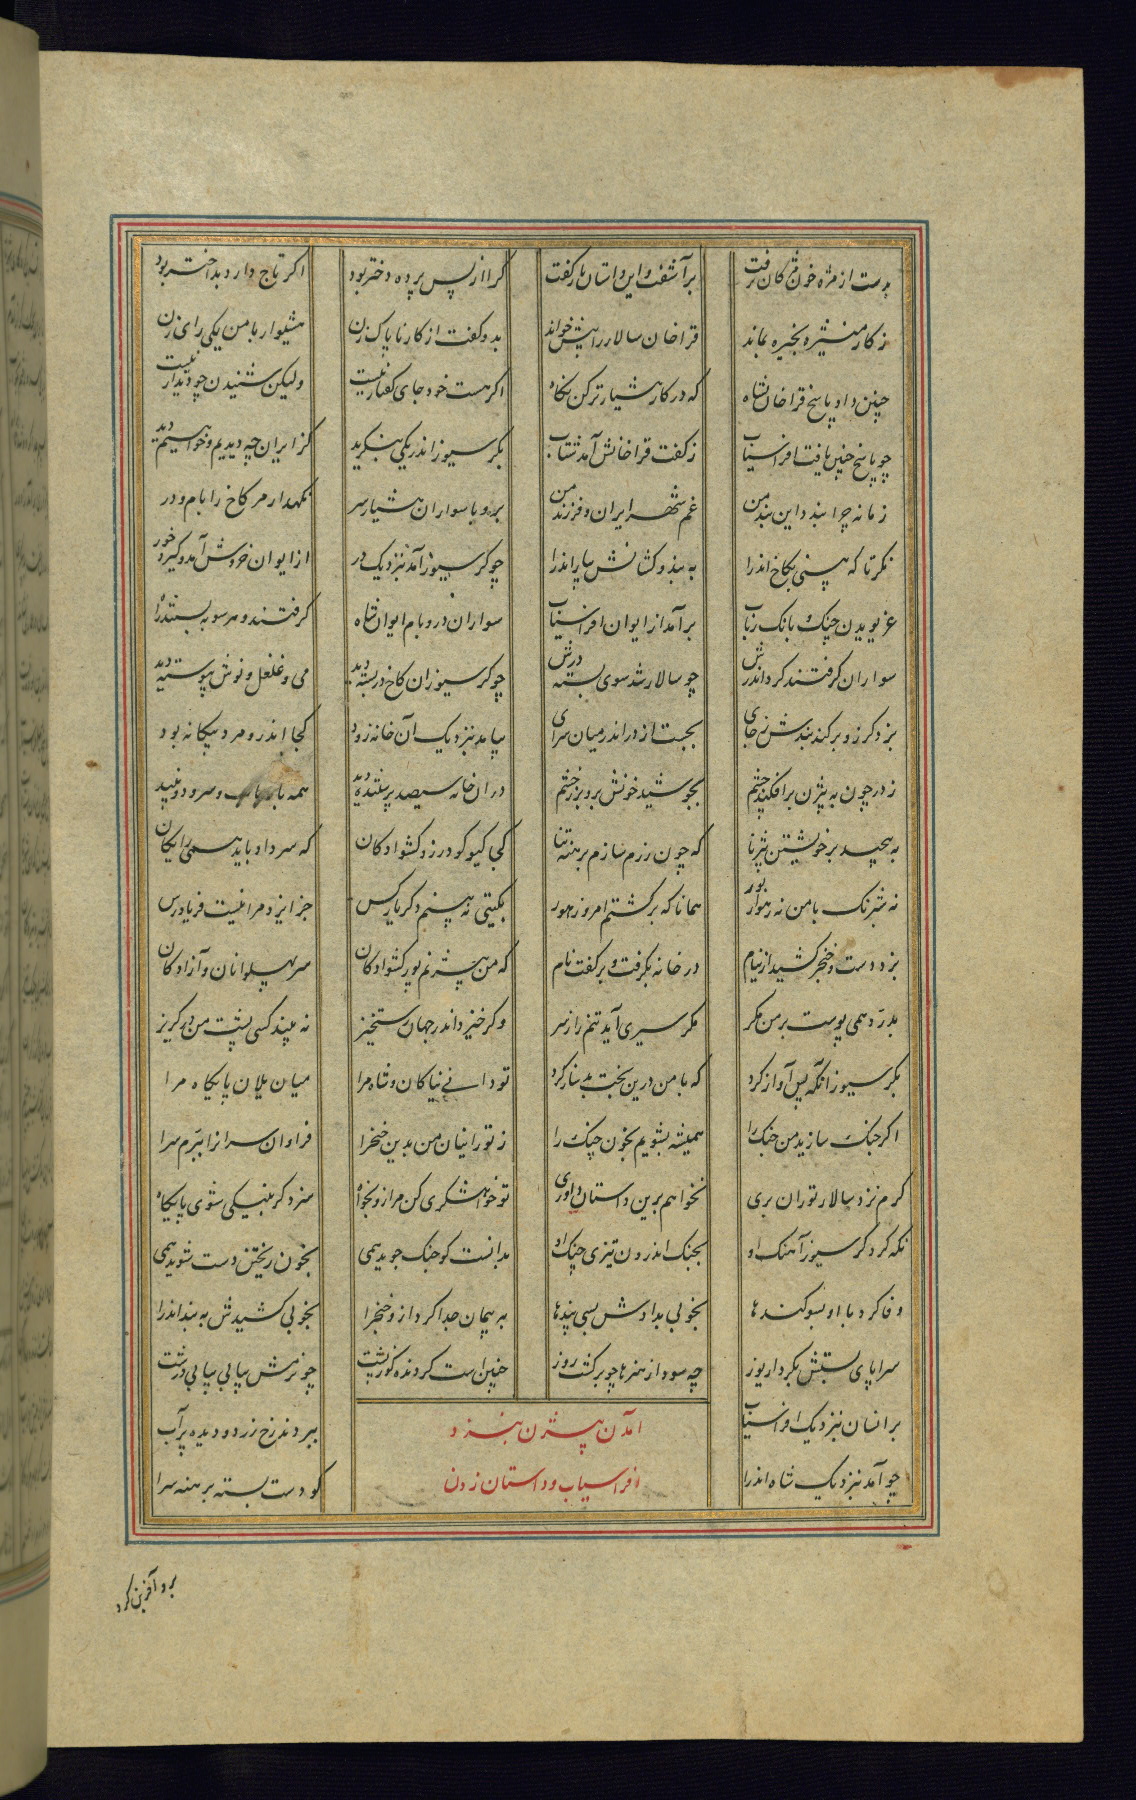 بدست از مژه خون مژگان برفت برآشفت و این داستان بازگفت کرا از پس پرده دختر بود اگر تاج دارد بداختر بود
ز کار منیژه بخیره بماند قراخان سالار را پیش خواند بدو گفت از کار ناپاک زن هشیوار با من یکی رای زن
چنین داد پاسخ قراخان بشاه که در کار هشیارتر کن نگاه اگر هست خود جای گفتار نیست ولیکن شنیدن چو دیدار نیست
چو پاسخ چنین یافت افراسیاب ز گفت قراخانش آمد شتاب بگرسیوز اندر یکی بنگرید کز ایران چه دیدیم و خواهیم دید
زمانه چرا بندد این بند من غم شهر ایران و فرزند من برو با سواران هشیار سر نگهدار مر کاخ را بام و در
نگر تا که بینی بکاخ اندرا به بند و کشانش بیار اندرا چو گرسیوز آمد نزدیک در از ایوان خروش آمد و گیر و خور
غریویدن چنگ و بانگ رباب برآمد از ایوان افراسیاب سواران در و بام ایوان شاه گرفتند و هر سو به بستند راه
سواران گرفتند گرد اندرش چو سالار شد سوی بسته درش چو گرسیوز ان کاخ در بسته دید می و غلغل و نوش پیوسته دید
بزد گرز و برکند بندش ز جای بجست از در اندر میان سرای بیامد بنزدیک آن خانه زود کجا اندرو مرد بیگانه بود
ز در چون به بیژن برافکند چشم بجوشید خونش برو بر ز خشم در ان خانه سیصد پرستنده دید همه با رباب و سرود و نبید
به پیچید بر خویشتن بیژنا که چون رزم سازم برهنه تنا کجا گیو گودرز کشوادگان که سر داد باید همی رایگان
نه شبرنگ با من نه رهوار بور همانا که برگشتم امروز هور بگیتی نه بینم دگر یار کس جز ایزد مرا نیست فریادرس
بزد دست و خنجر کشید از نیام در خانه بگرفت و برگفت نام که من بیژنم پور کشوادگان سر پهلوانان و آزادگان
بدرد همی پوست بر من مگر مگر سیری آید تنم را ز سر وگر خیزد اندر جهان رستخیز نه بیند کسی پشت من در گریز
بگرسیوز انگه پس آواز کرد که با من درین بخت بد ساز کرد تو دانی نیاکان و شاه مرا میان یلان پایگاه مرا
اگر جنگ سازید من جنگ را همیشه بشویم بخون چنگ را ز تورانیان من بدین خنجرا فراوان سران را ببرم سرا
گرم نزد سالار توران بری نخواهم برین داستان داوری تو خواهشگری کن مرا زو بخواه سزد گر بنیکی شوی پایگاه
نگه کرد گرسیوز آهنگ او بجنگ اندرون تیزی چنگ او بدانست کو جنگ جوید همی بخون ریختن دست شوید همی
وفا کرد با او بسوگندها بخوبی بدادش بسی پندها به پیمان جدا کرد ازو خنجرا بخوبی کشیدش به بند اندرا
سراپای بستش بکردار یوز چه سود از هنرها چو برگشت روز چنین است کردنده کوژپشت چو نرمش بیابی بیابی درشت
برانسان نزدیک افراسیاب ببردند رخ زرد و دیده پرآب
آمدن بیژن بنزد
چو آمد نزدیک شاه اندرا کو دست بسته برهنه سرا
افراسیاب و داستان زدن
برو آفرین کرد